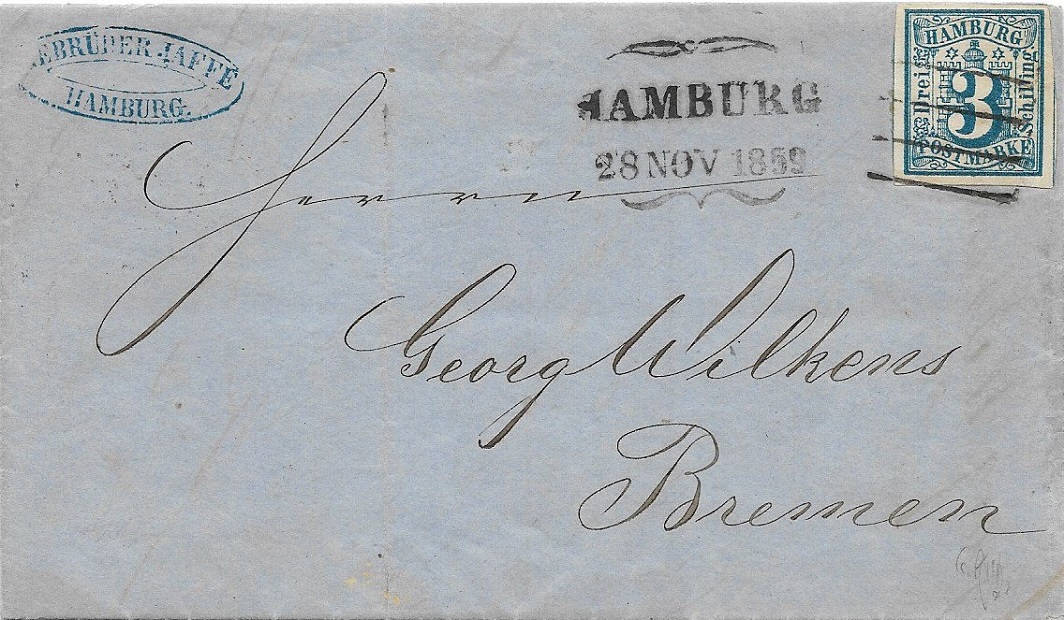 EBRÜDER JAFFE
HAMBURG.
HAMBURG
28 NOV 1859
HAMBURG
Drei
3
Schilling
POSTMARKE
Herrn
Georg Wilkens
Bremen